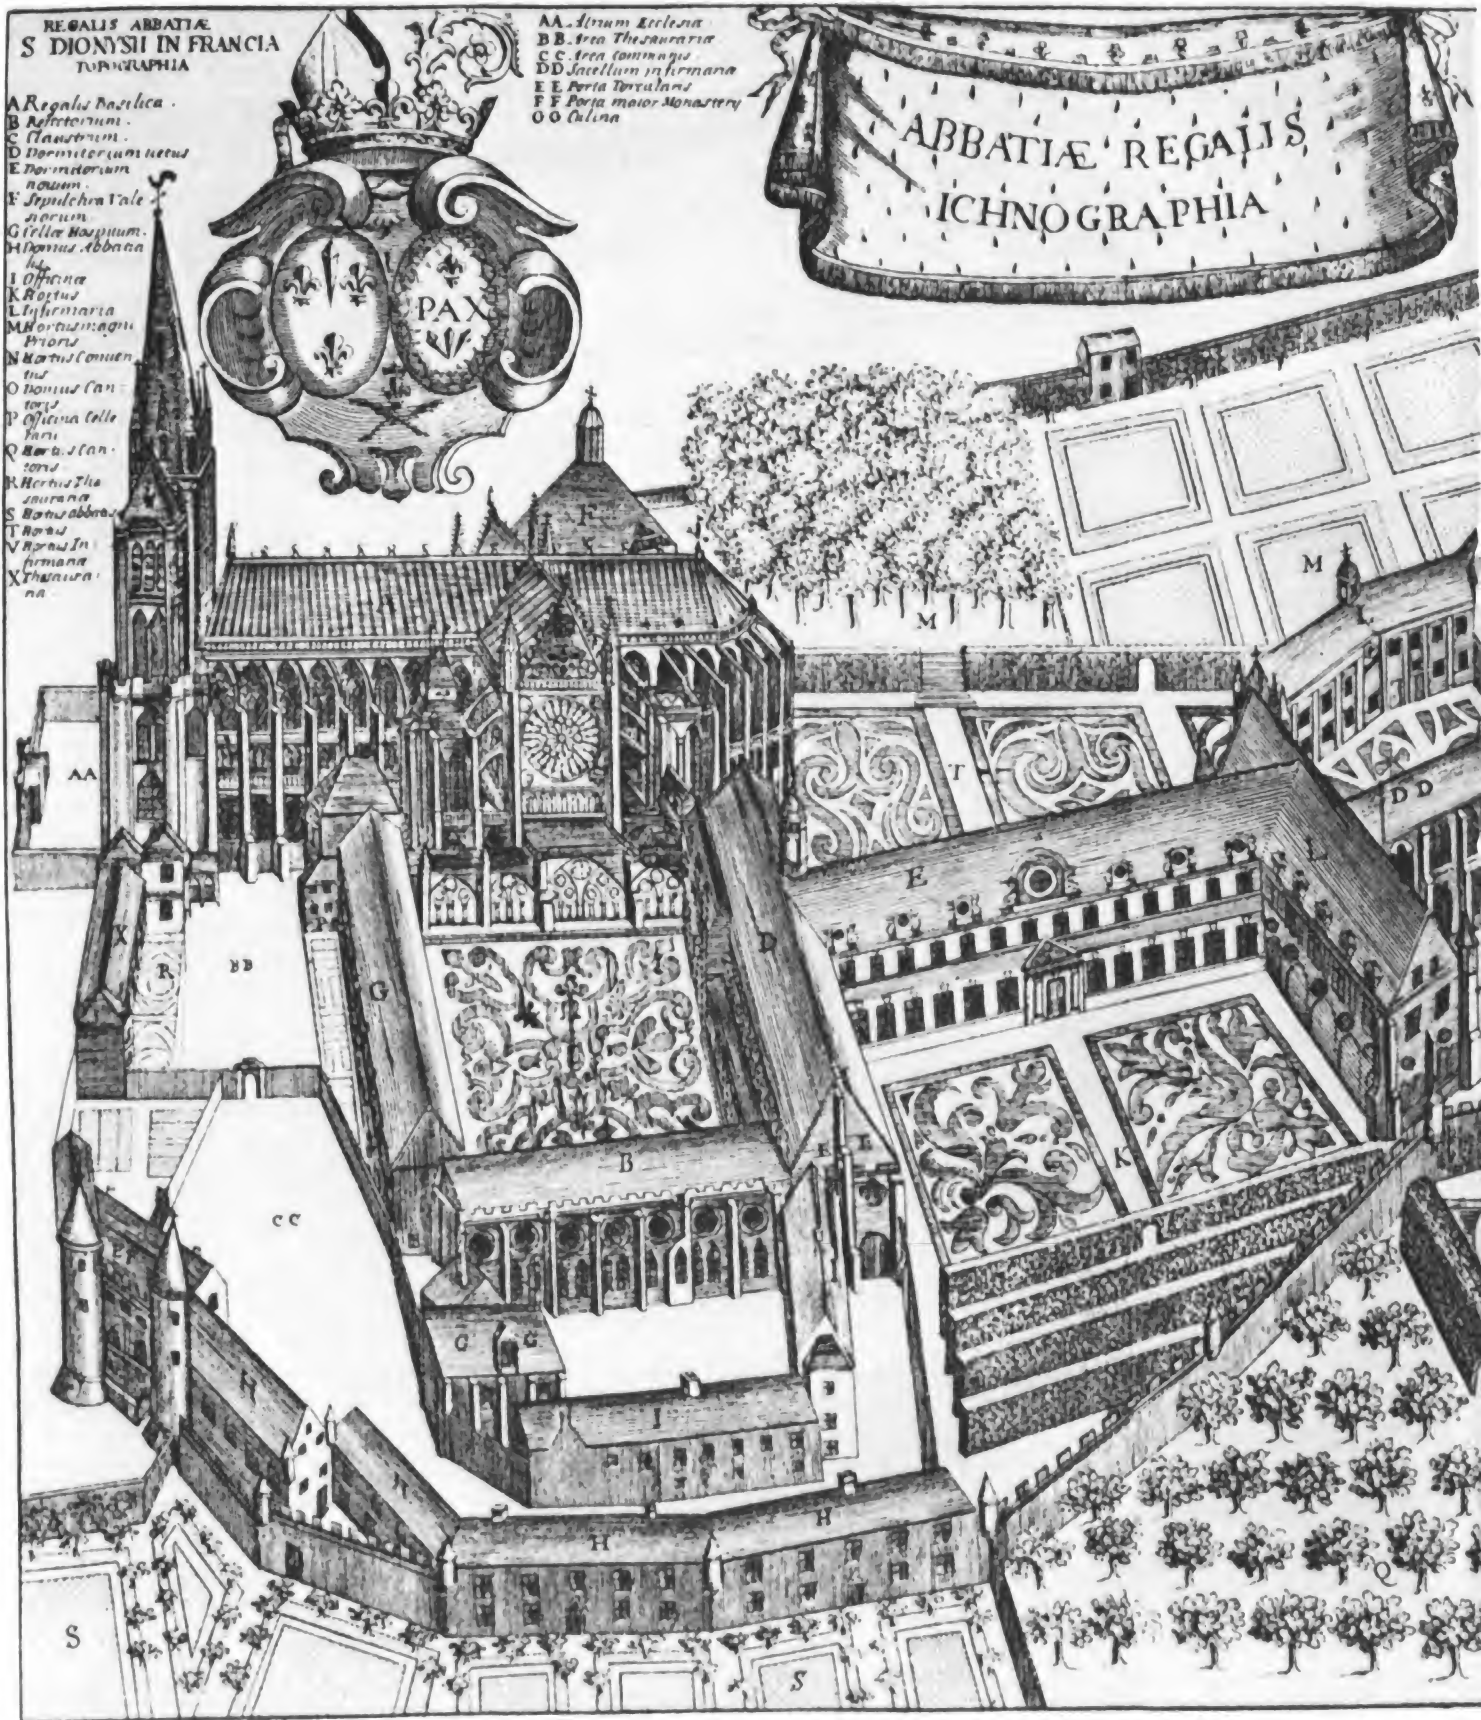 REGALIS ABBATIÆ
S DIONYSII IN FRANCIA
TOPOGRAPHIA
A Regalis Basilica.
B Refectorium.
C Claustrum.
D Dormitorium uetus
E Dormitorium
nouum.
F Sepulchra Vale
siorum
G Cellæ Hospitum.
H Domus Abbatia
lis
I Officinæ
K Hortus
L Infirmaria
M Hortus magni
Prioris
N Hortus Conuen
tus
O Domus Can
toris
P Officina Celle
rarii
Q Hortus Can-
toris
R Hortus The
saurariæ
S Hortus Abbatis
T Hortus
V Hortus In
firmariæ
X Thesaura-
ria
AA. Atrium Ecclesiæ
BB. Area Thesaurariæ
CC. Area communis
DD Sacellum infirmariæ
EE Porta Torcularis
FF Porta maior Monastery
OO Culina
ABBATIÆ REGALIS
ICHNOGRAPHIA
PAX
F
M
M
AA
T
DD
E
L
X
R
BB
G
D
B
K
CC
G G
H
I
H
H
Q
S
S